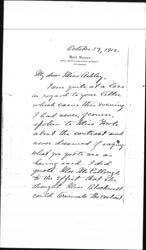 October 13, 1912.
Hull House
My dear Miss Ashley:
I am quite at a loss
in regard to your letter
which came this evening.
I had never, of course,
spoken to Miss
about the contract and
never dreamed of saying
what you quote me as
having said. I did
quote Mrs McCullough
to the effect that she
thought Miss Blackwell
could terminate the contract